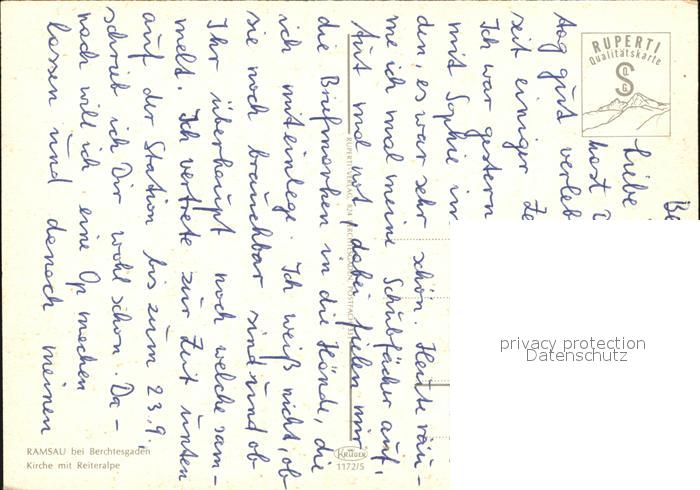 RUPERTI
Qualitätskarte
S
O.
G.
Be
Liebe
hast D
Tag gut verleb
seit einiger Ze
Ich war gestern
mit Sophie in
den, es war sehr schön. Heute räu-
me ich mal meine Schubfächer auf,
tut mal not, dabei fielen mir
die Briefmarken in die Hände, die
ich miteinlege. Ich weiß nicht, ob
sie noch brauchbar sind und ob
Ihr überhaupt noch welche sam-
melt. Ich vertrete zur Zeit unten
auf der Station bis zum 23.9.,
schrieb ich Dir wohl schon. Da-
nach will ich eine Op machen
lassen und danach meinen
RUPERTI-VERLAG
privacy protection
Datenschutz
RAMSAU bei Berchtesgaden
Kirche mit Reiteralpe
KRÜGER
1172/5